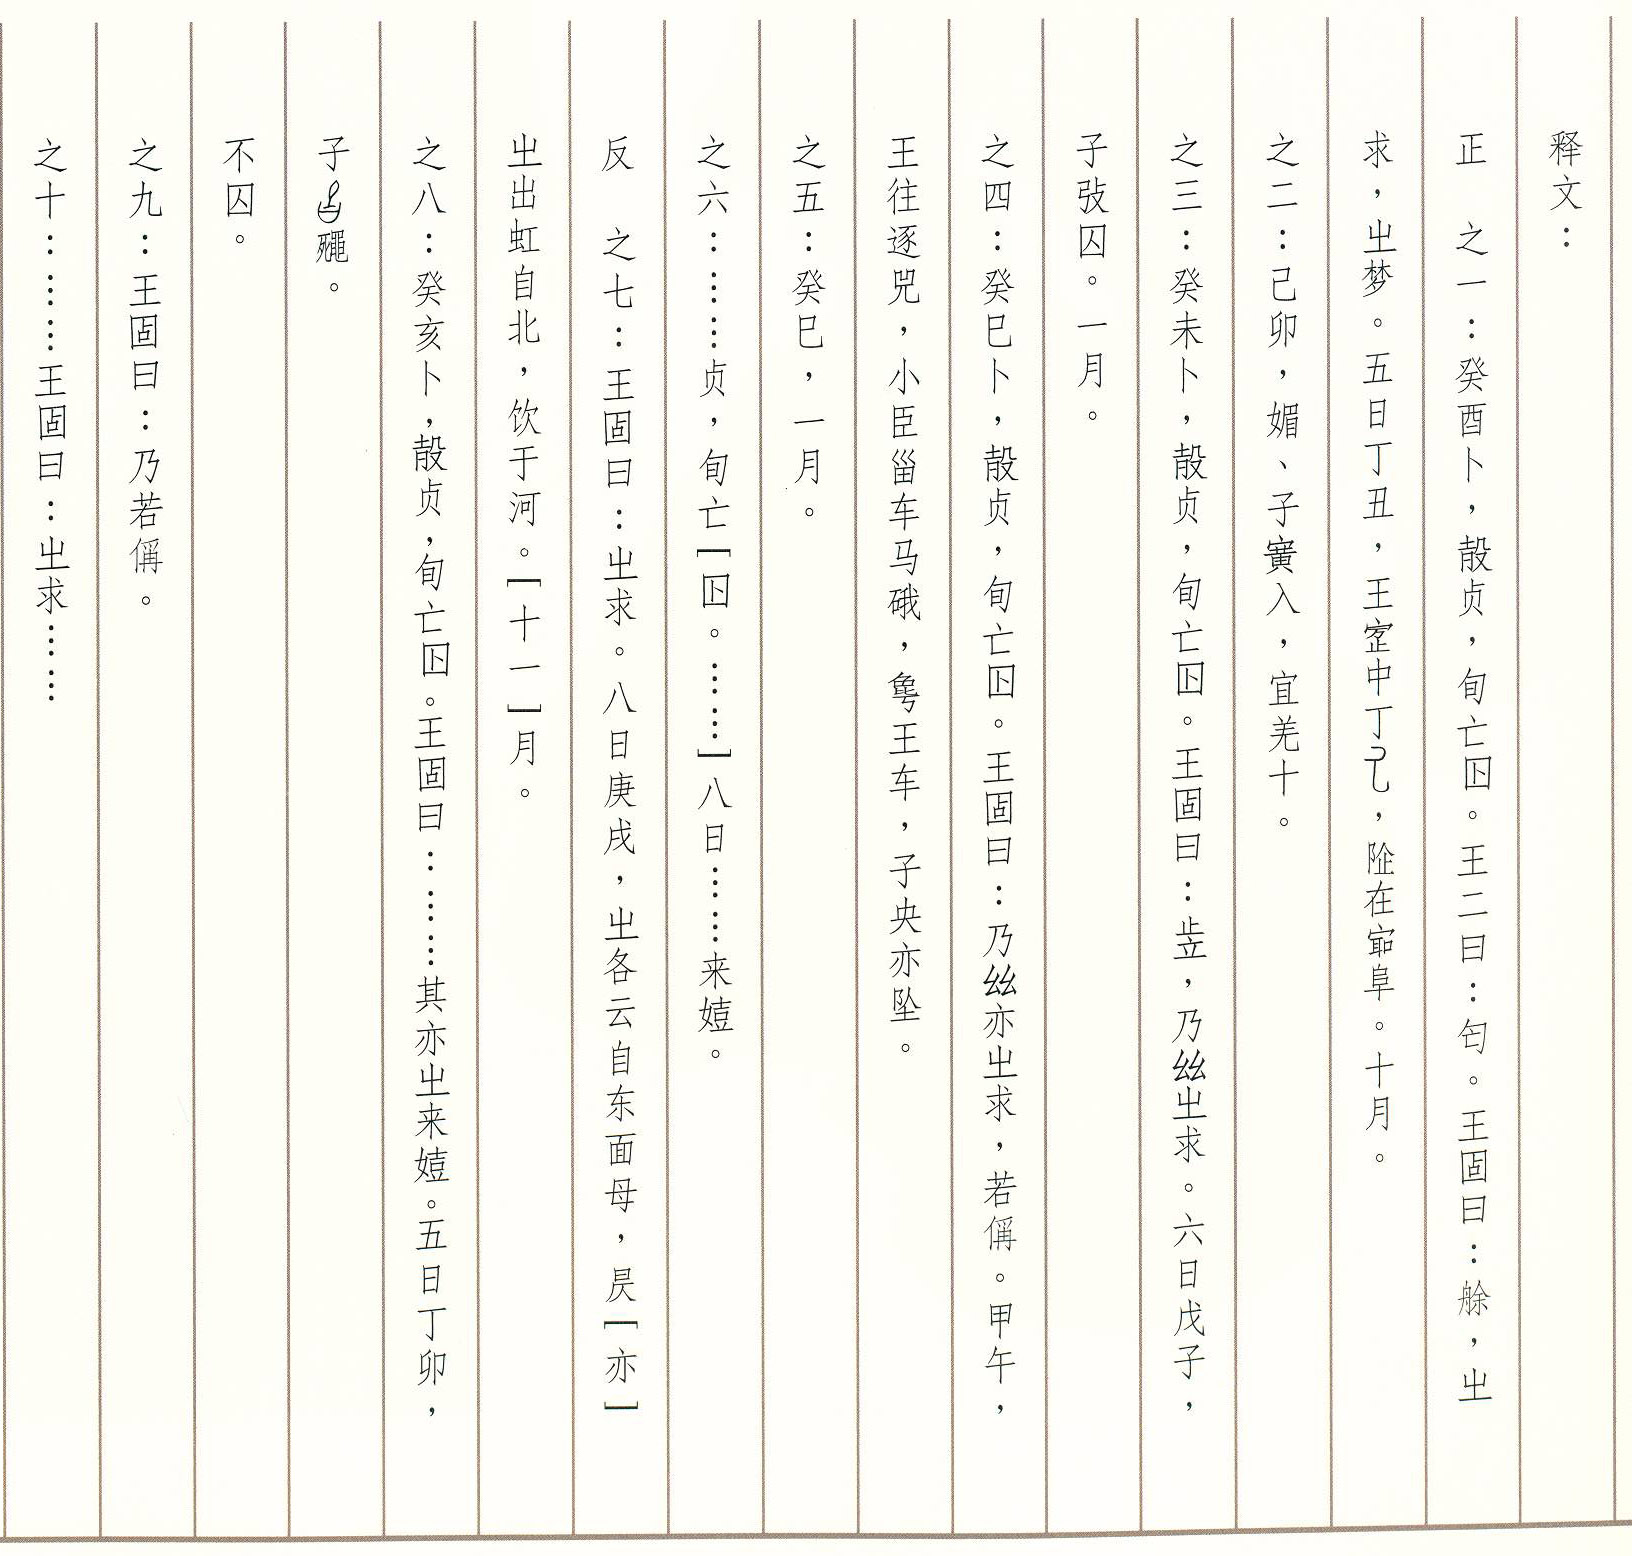 释文：
正　之一：癸酉卜，㱿贞，旬亡囚。王二曰：匄。王固曰：艅，㞢
求，㞢梦。五日丁丑，王中丁，阝在阜。十月。
之二：己卯，媚、子寅入，宜羌十。
之三：癸未卜，㱿贞，旬亡囚。王固曰：，乃㞢求。六日戊子，
子弢囚。一月。
之四：癸巳卜，㱿贞，旬亡囚。王固曰：乃亦㞢求，若偁。甲午，
王往逐兕，小臣甾车马硪，王车，子央亦坠。
之五：癸巳，一月。
之六：………贞，旬亡[囚。……]八日……来嬄。
反　之七：王固曰：㞢求。八日庚戌，㞢各云自东面母，昃[亦]
㞢出虹自北，饮于河。[十一]月。
之八：癸亥卜，㱿贞，旬亡囚。王固曰：………其亦㞢来嬄。五日丁卯，
子。
不囚。
之九：王固曰：乃若偁。
之十：………王固曰：㞢求……